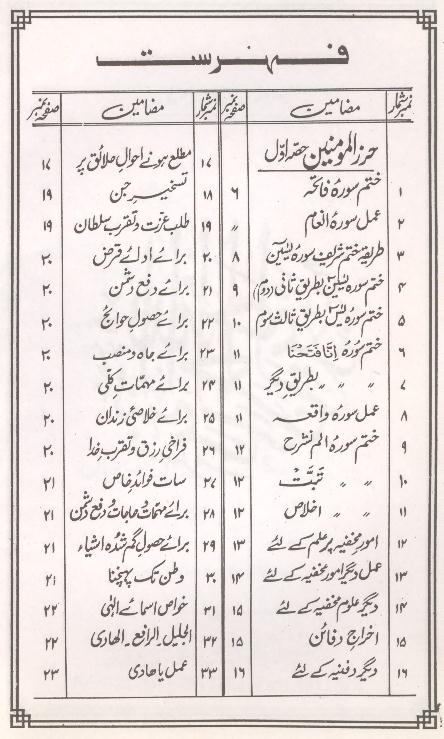 فہرست
نمبر شمار مضامین صفحہ نمبر
حرز المومنین حصہ اوّل
۱ ختم سورۂ فاتحہ ۶
۲ عمل سورۂ انعام ״
۳ طریقۂ ختم شریف سورۂ یٰسین ۸
۴ ختم سورۂ یٰسین بطریق ثانی (دوم) ۹
۵ ختم سورۂ یٰس بطریق ثالث سوم ۱۰
۶ ختم سورۂ اِنَّا فَتَحْنَا ۱۱
۷ ״ ״ ״ بطریق دیگر ۱۱
۸ عمل سورۂ واقعہ ۱۱
۹ ختم سورۂ الم نشرح ۱۲
۱۰ ״ ״ تبَّت ۱۲
۱۱ ״ ״ اخلاص ۱۲
۱۲ امور مخفیہ پر علم کے لئے ۱۳
۱۳ عمل دیگر امور مخفیہ کے لئے ۱۴
۱۴ دیگر علوم مخفیہ کے لئے ۱۵
۱۵ اخراج دفائن ۱۵
۱۶ دیگر دفنیہ کے لئے ۱۶
نمبر شمار مضامین صفحہ نمبر
۱۷ مطلع ہونے احوال خلائق پر ۱۷
۱۸ تسخیر جن ۱۹
۱۹ طلب عزت و تقرب سلطان ۱۹
۲۰ برائے ادائے قرض ۲۰
۲۱ برائے دفع دشمن ۲۰
۲۲ برائے حصول حوائج ۲۰
۲۳ برائے جاہ و منصب ۲۰
۲۴ برائے مہمّات کلّی ۲۰
۲۵ برائے خلاصئ زندان ۲۰
۲۶ فراخئ رزق و تقرب خدا ۲۰
۲۷ سات فوائد خاص ۲۱
۲۸ برائے مہمّات و حاجات و دفع دشمن ۲۱
۲۹ برائے حصول گم شدہ اشیاء ۲۱
۳۰ وطن تک پہنچنا ۲۱
۳۱ خواص اسمائے الٰہی ۲۲
۳۲ الجلیل۔ الرافع۔ الھادی ۲۲
۳۳ عمل یا ھادی ۲۳